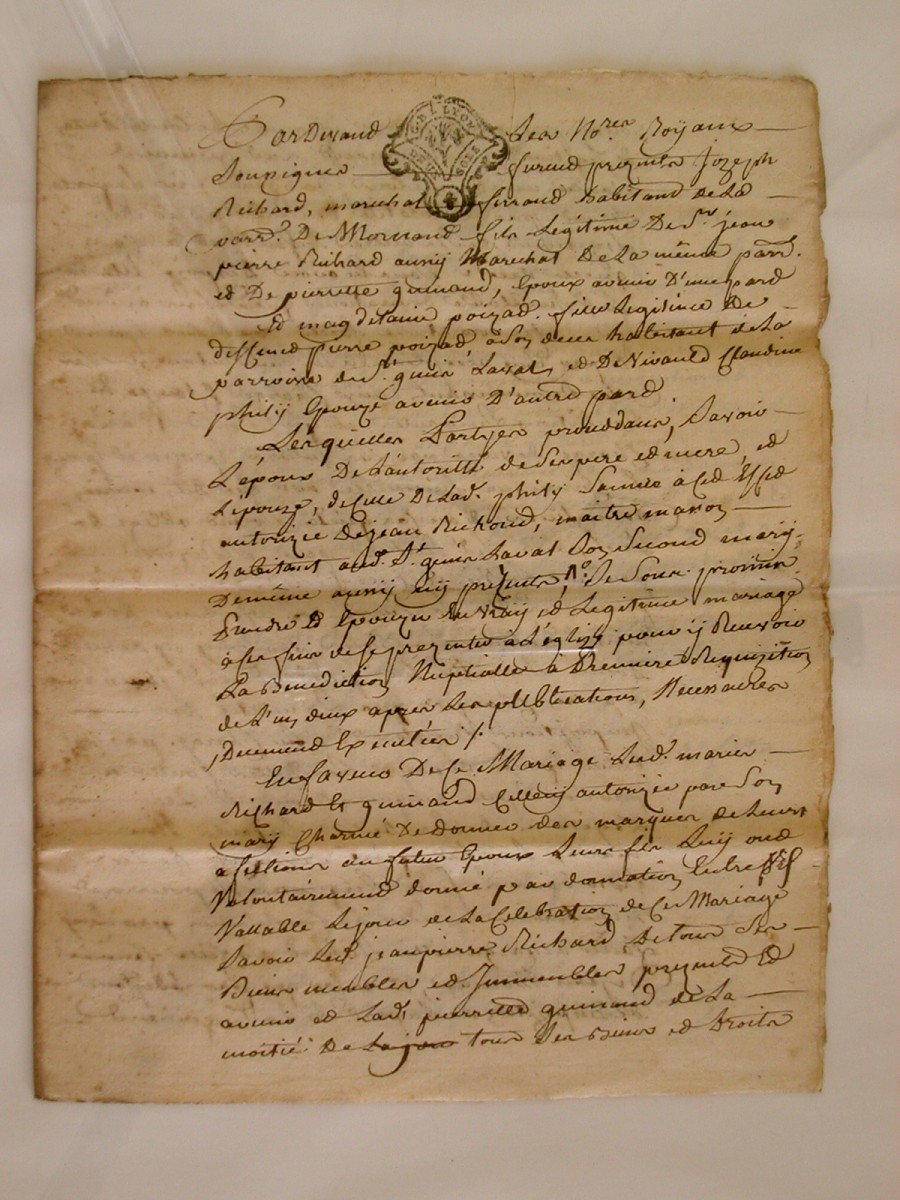 Pardevand Les No.res Royaux
Soussignes furend presents Jozeph
Richard, marechal ferrand habitand de La
parr.e De Mornand fils Legitime De S.r jean
pierre Richard aussy Marechal De La même parr.
ed De pierrette guinand, Epoux avenir D'une pard
Ed magdelaine poizad. fille Legitime De
deffund Pierre poizad a son vivant habitant de La
parroisse de S.t Laval, ed De Vivante Claudine
phily Epouze avenir D'autre pard
Lesquelles Partyes proceddans, Savoir
L'époux De L'autoritté de Ses pere ed mere, ed
L'épouze, de celle De Lad. phily Sa mère a Ced Effed
autorizée De jean Richoud, maitre masson
habitant aud. S.t Laval Son Second mary
De même aussy icy presents, de Sont promis
Prendre Ed Epouzer En Vray ed Legitime mariage
a ses fins de se prezenter a L'églize pour y Recevoir
La Benediction Nuptialle a Premiere Requizition
de L'un deux apres Les publications, Necessaires
, Duemend Exécutées /.
En faveur De Ce Mariage Led. maries
Richard Et guinand Celle cy autorizée par Son
mary Charmé De donner des marques de Leurs
afections au futur Epoux Leurs fils Luy ond
Volontairemend donné par donnation Entre Vifs
Vallable Le jour de La Celebration de Ce Mariage
Savoir Led. jean pierre Richard De tous Ses
Biens meubles ed Immeubles prezents Ed
avenir ed Lad. pierrette guinand de La
moitié De tous Ses Biens ed Droits